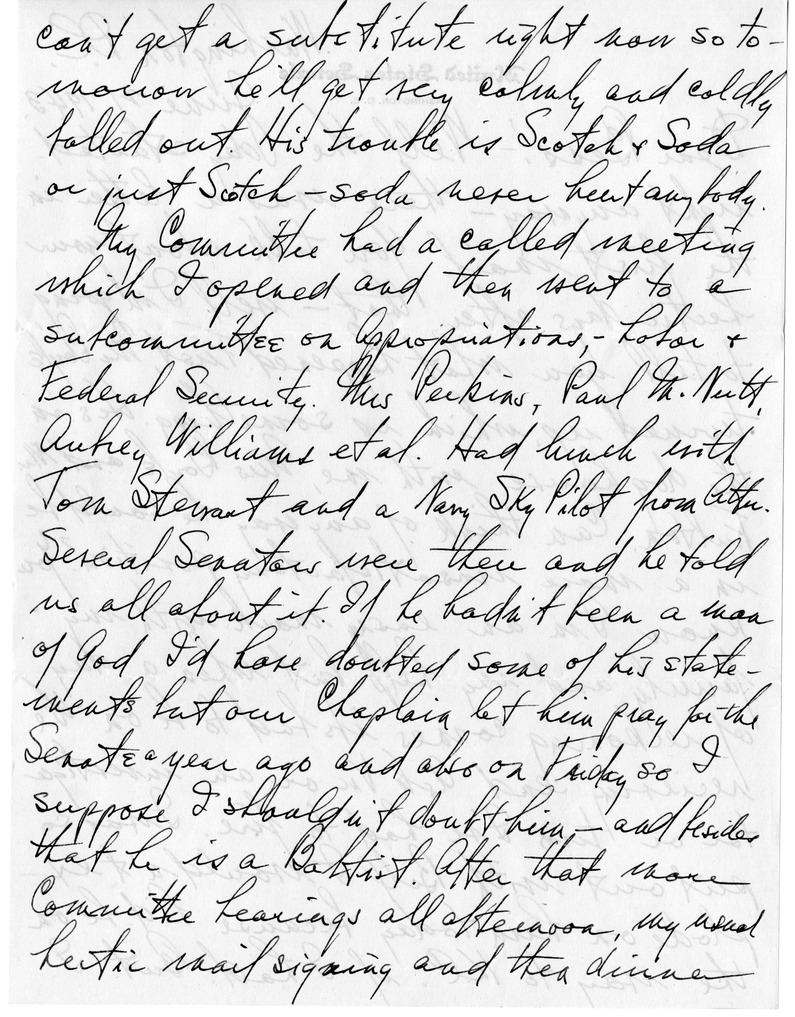 can't get a substitute right now so to-
morrow he'll get very calmly and coldly
talled out. His trouble is Scotch & Soda
or just Scotch - soda never hurt anybody.
My Committee had a called meeting
which I opened and then went to a
subcommittee on Appropriations,- Labor &
Federal Security. Mrs Perkins, Paul M. Nutt,
Aubrey Williams et al. Had lunch with
Tom Stewart and a Navy Sky Pilot from Attu.
Several Senators were there and he told
us all about it. If he hadn't been a man
of God I'd have doubted some of his state-
ments but our Chaplain let him pray for the
Senate a year ago and also on Friday so I
suppose I shouldn't doubt him,- and besides
that he is a Babtist. After that more
Committee hearings all afternoon, my usual
hectic mail signing and then dinner